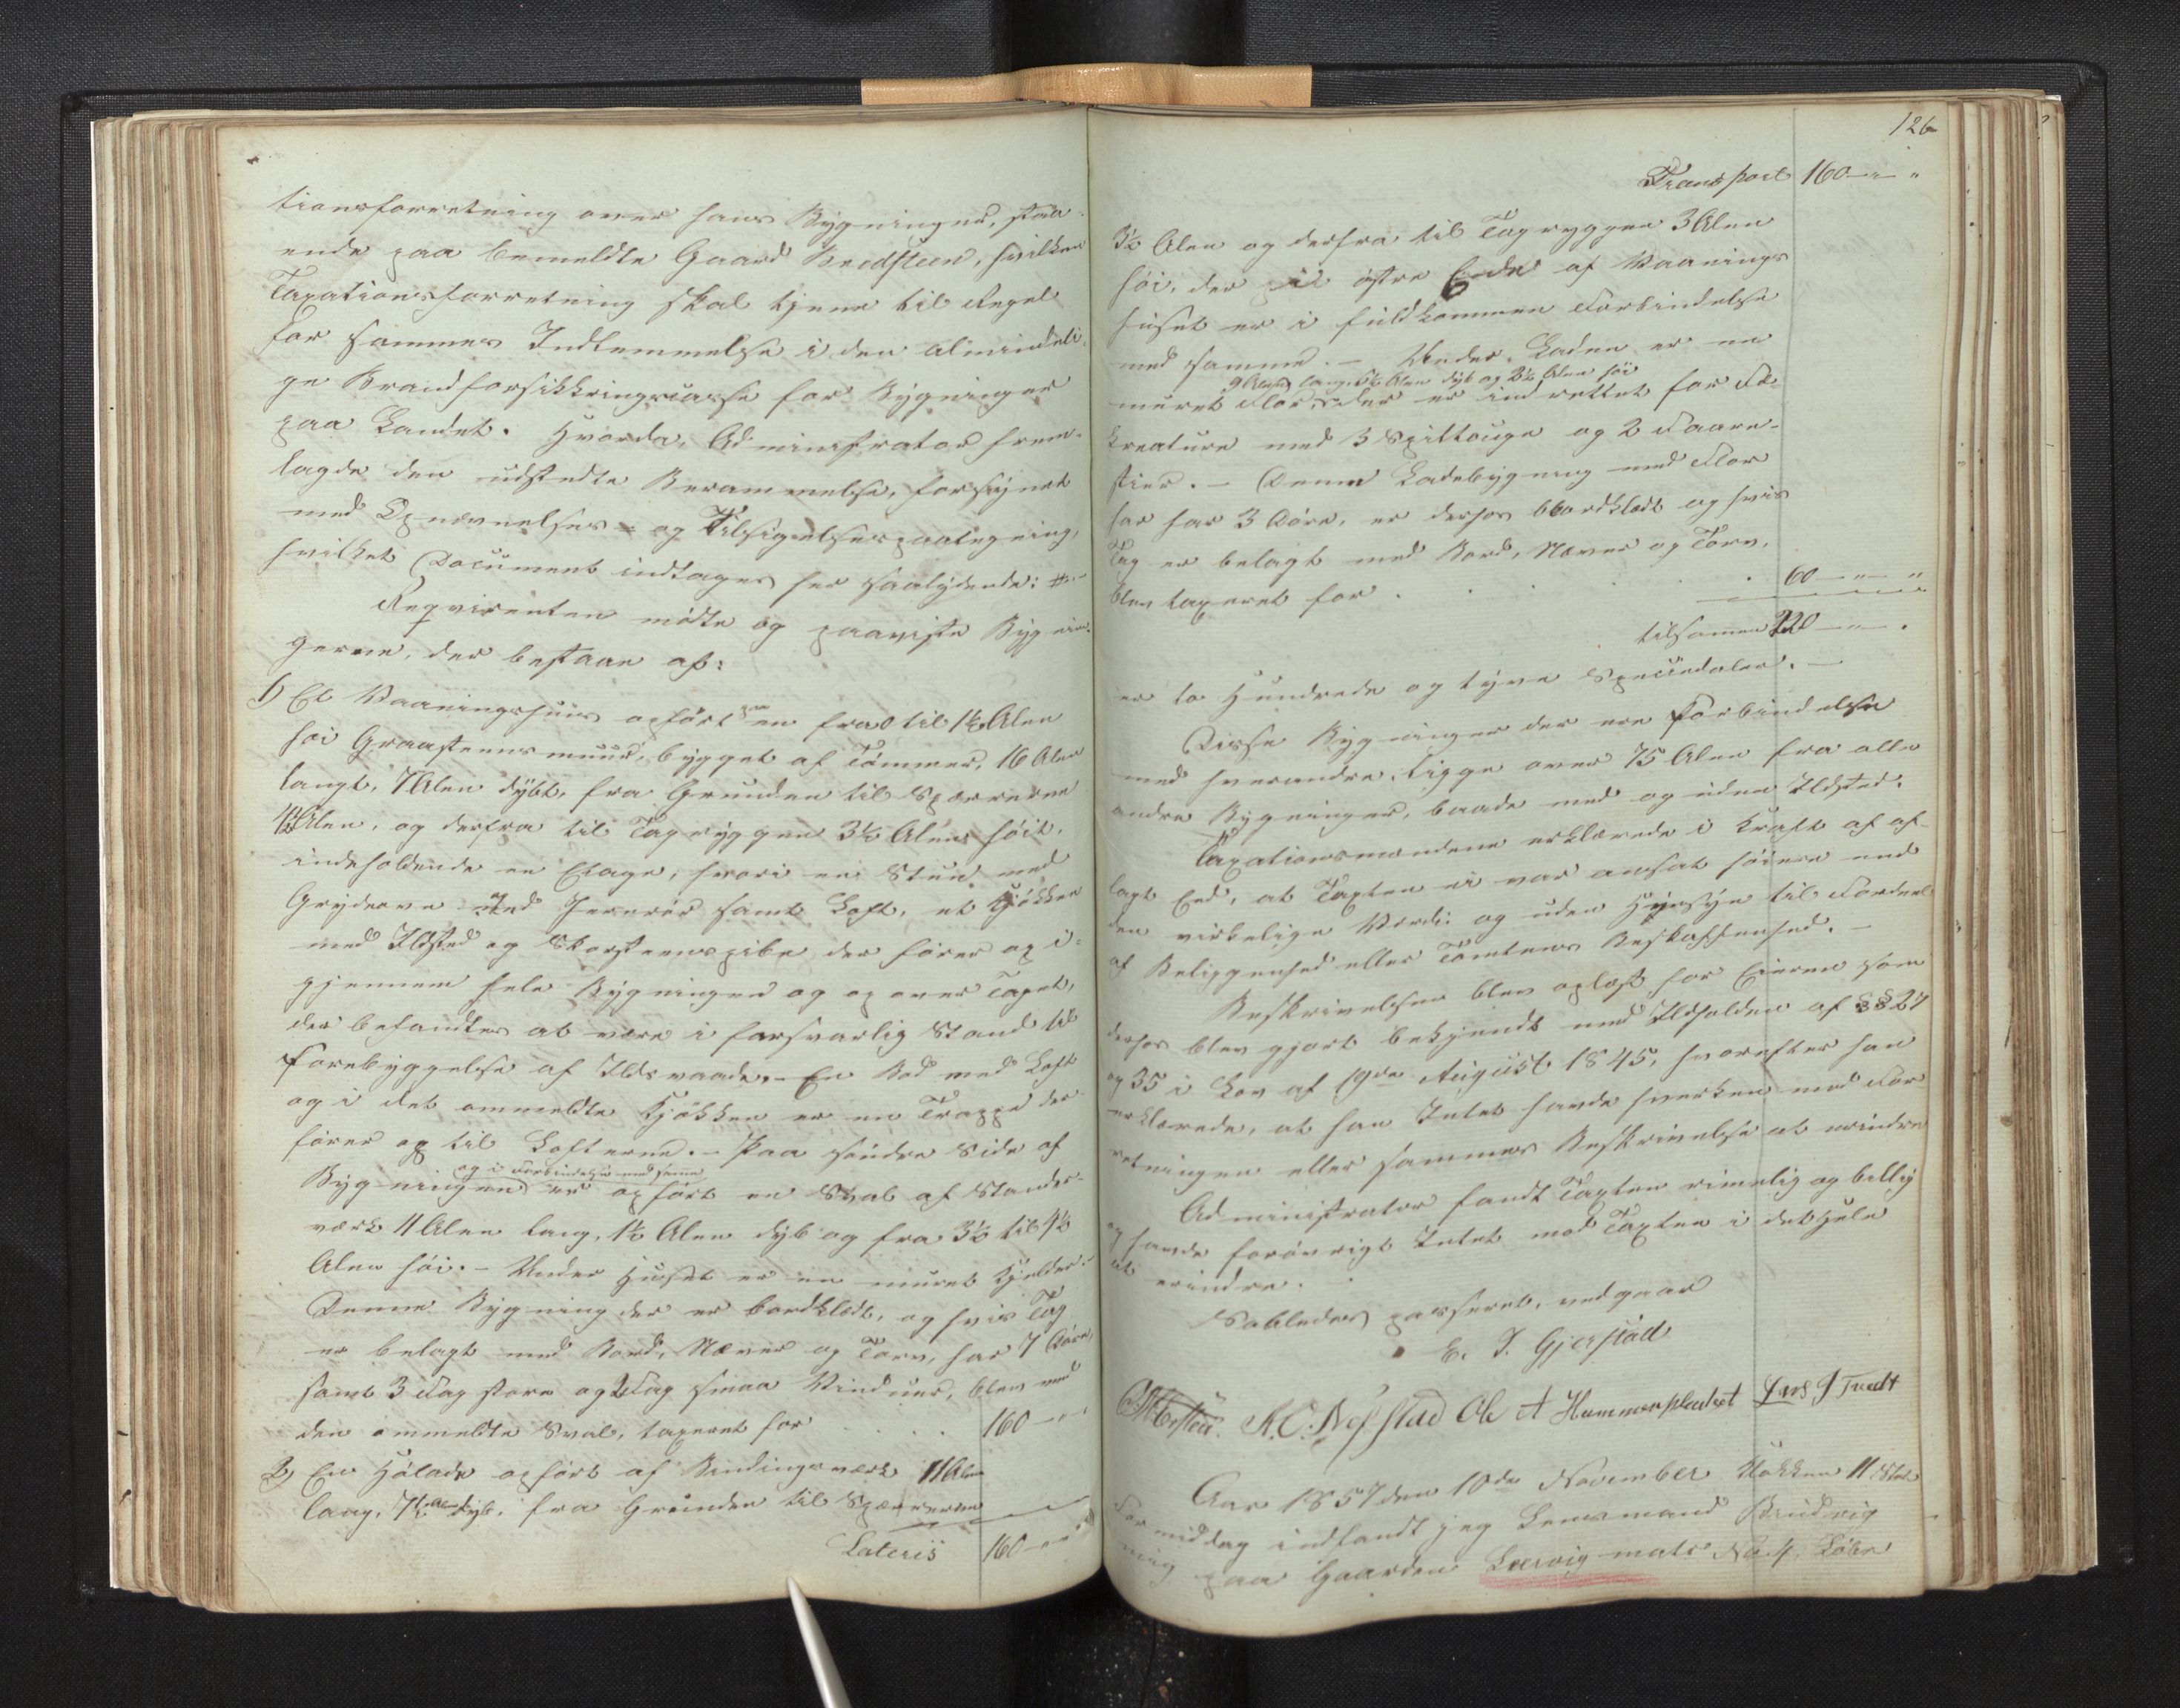 tionsforretning over hans Bygninger, staa-
ende paa bemeldte Gaard Bredsteen, hvilken
Taxationsforretning skal tjene til Regel
for sammes Indlemmelse i den almindeli-
ge Brandforsikkringscasse for Bygninger
paa Landet. Hvorda, Administrator frem-
lagde den udstedte Berammelse, forsÿnet
med Opnævnelses- og Tilsigelsespaategning,
hvilket Document indtages her saalÿdende: #.-
Reqvirenten mødte og paaviste Bÿgnin-
gerne, der bestaae af:
1) Et Vaaningshuus opført paa en fra 0 til 1½ Alen
høi Graasteensmuur, bygget af Tømmer, 16 Alen
langt, 7 Alen dÿbt, fra Grunden til Sperrerne
Alen, og derfra til Tagrÿggen 3½ Alen høit,
indeholdende en Etage, hvori en Stue med
Grydeovn med Jernrør samt Loft, et Kjøkken
med Ildsted og Skorsteenspibe der fører op i-
gjennem hele Bÿgningen og op over Taget,
der befandtes at være i forsvarlig Stand til
Forebyggelse af Ildsvaade. - En Bod med Loft
og i det ommeldte Kjøkken er en Trappe der
fører op til Lofterne. - Paa søndre Side af
og i Forbindelse med samme
Bÿgningen er opført en Sval af Stander-
værk 11 Alen lang, 1½ Alen dÿb og fra 3½ til 4½
Alen høi. - Under Huset er en muret Kjelder. -
Denne Bygning der er bordklædt, og hvis Tag
er belagt med Bord, Næver og Torv, har 7 Døre,
samt 3 Fag store og 2 Fag smaa Vinduer, blev med
den ommeldte Sval, taxeret for . . . . 160 - " - "
2) En Hølade opført af Bindingsværk 11 Alen
lang, 7½ Alen dyb, fra Grunden til Sperrerne
Lateris 160 - " - "
126
Transport 160 - " - "
3½ Alen og derfra til Tagryggen 3 Alen
høi, der paa østre Ende af Vaanings
huset er i fuldkommen Forbindelse
med samme. - Under Laden er en
9 Alen lang, 5½ Alen dyb og 2½ Alen høi
muret Flor, der er indrettet for Fæ-
kreature med 3 Spiltouge og 2 Faare-
stier. - Denne Ladebygning med Flor
har har 3 Døre, er derhos bordklædt og hvis
Tag er belagt med Bord, Næver og Torv,
blev taxeret for . . . . 60 - " - "
tilsammen 220 - " - "
er to Hundrede og tyve Speciedaler. -
Disse Bygninger der ere Forbindelse
med hverandre, ligge over 75 Alen fra alle
andre Bygninger, baade med og uden Ildsted.
Taxationsmændene erklærede i Kraft af af-
lagt Eed, at Taxten ei var ansat høiere end
den virkelige Værdi og uden Hensÿn til Fordeel
af Beliggenhed eller Tomtens Beskaffenhed. -
Beskrivelsen blev oplæst for Eieren som
derhos blev gjort bekjendt med Indholden af §§ 27
og 35 i Lov af 19de August 1845, hvorefter han
erklærede, at han Intet havde hverken mod For-
retningen eller sammes Beskrivelse at erindre
Administrator fandt Taxten rimelig og billig
og havde forøvrigt Intet mod Taxten i det Hele
at erindre.
Saaledes passeret, vedgaar
E. J. Gjerstad
K. O. Refstad Ole A Hammerpladset Lars J Tvedt
Aar 1857 den 10de November Klokken 11 Slet
Formiddag indfandt jeg Lensmand Brudvig
mig paa Gaarden Leervig matr No 4, Løbe